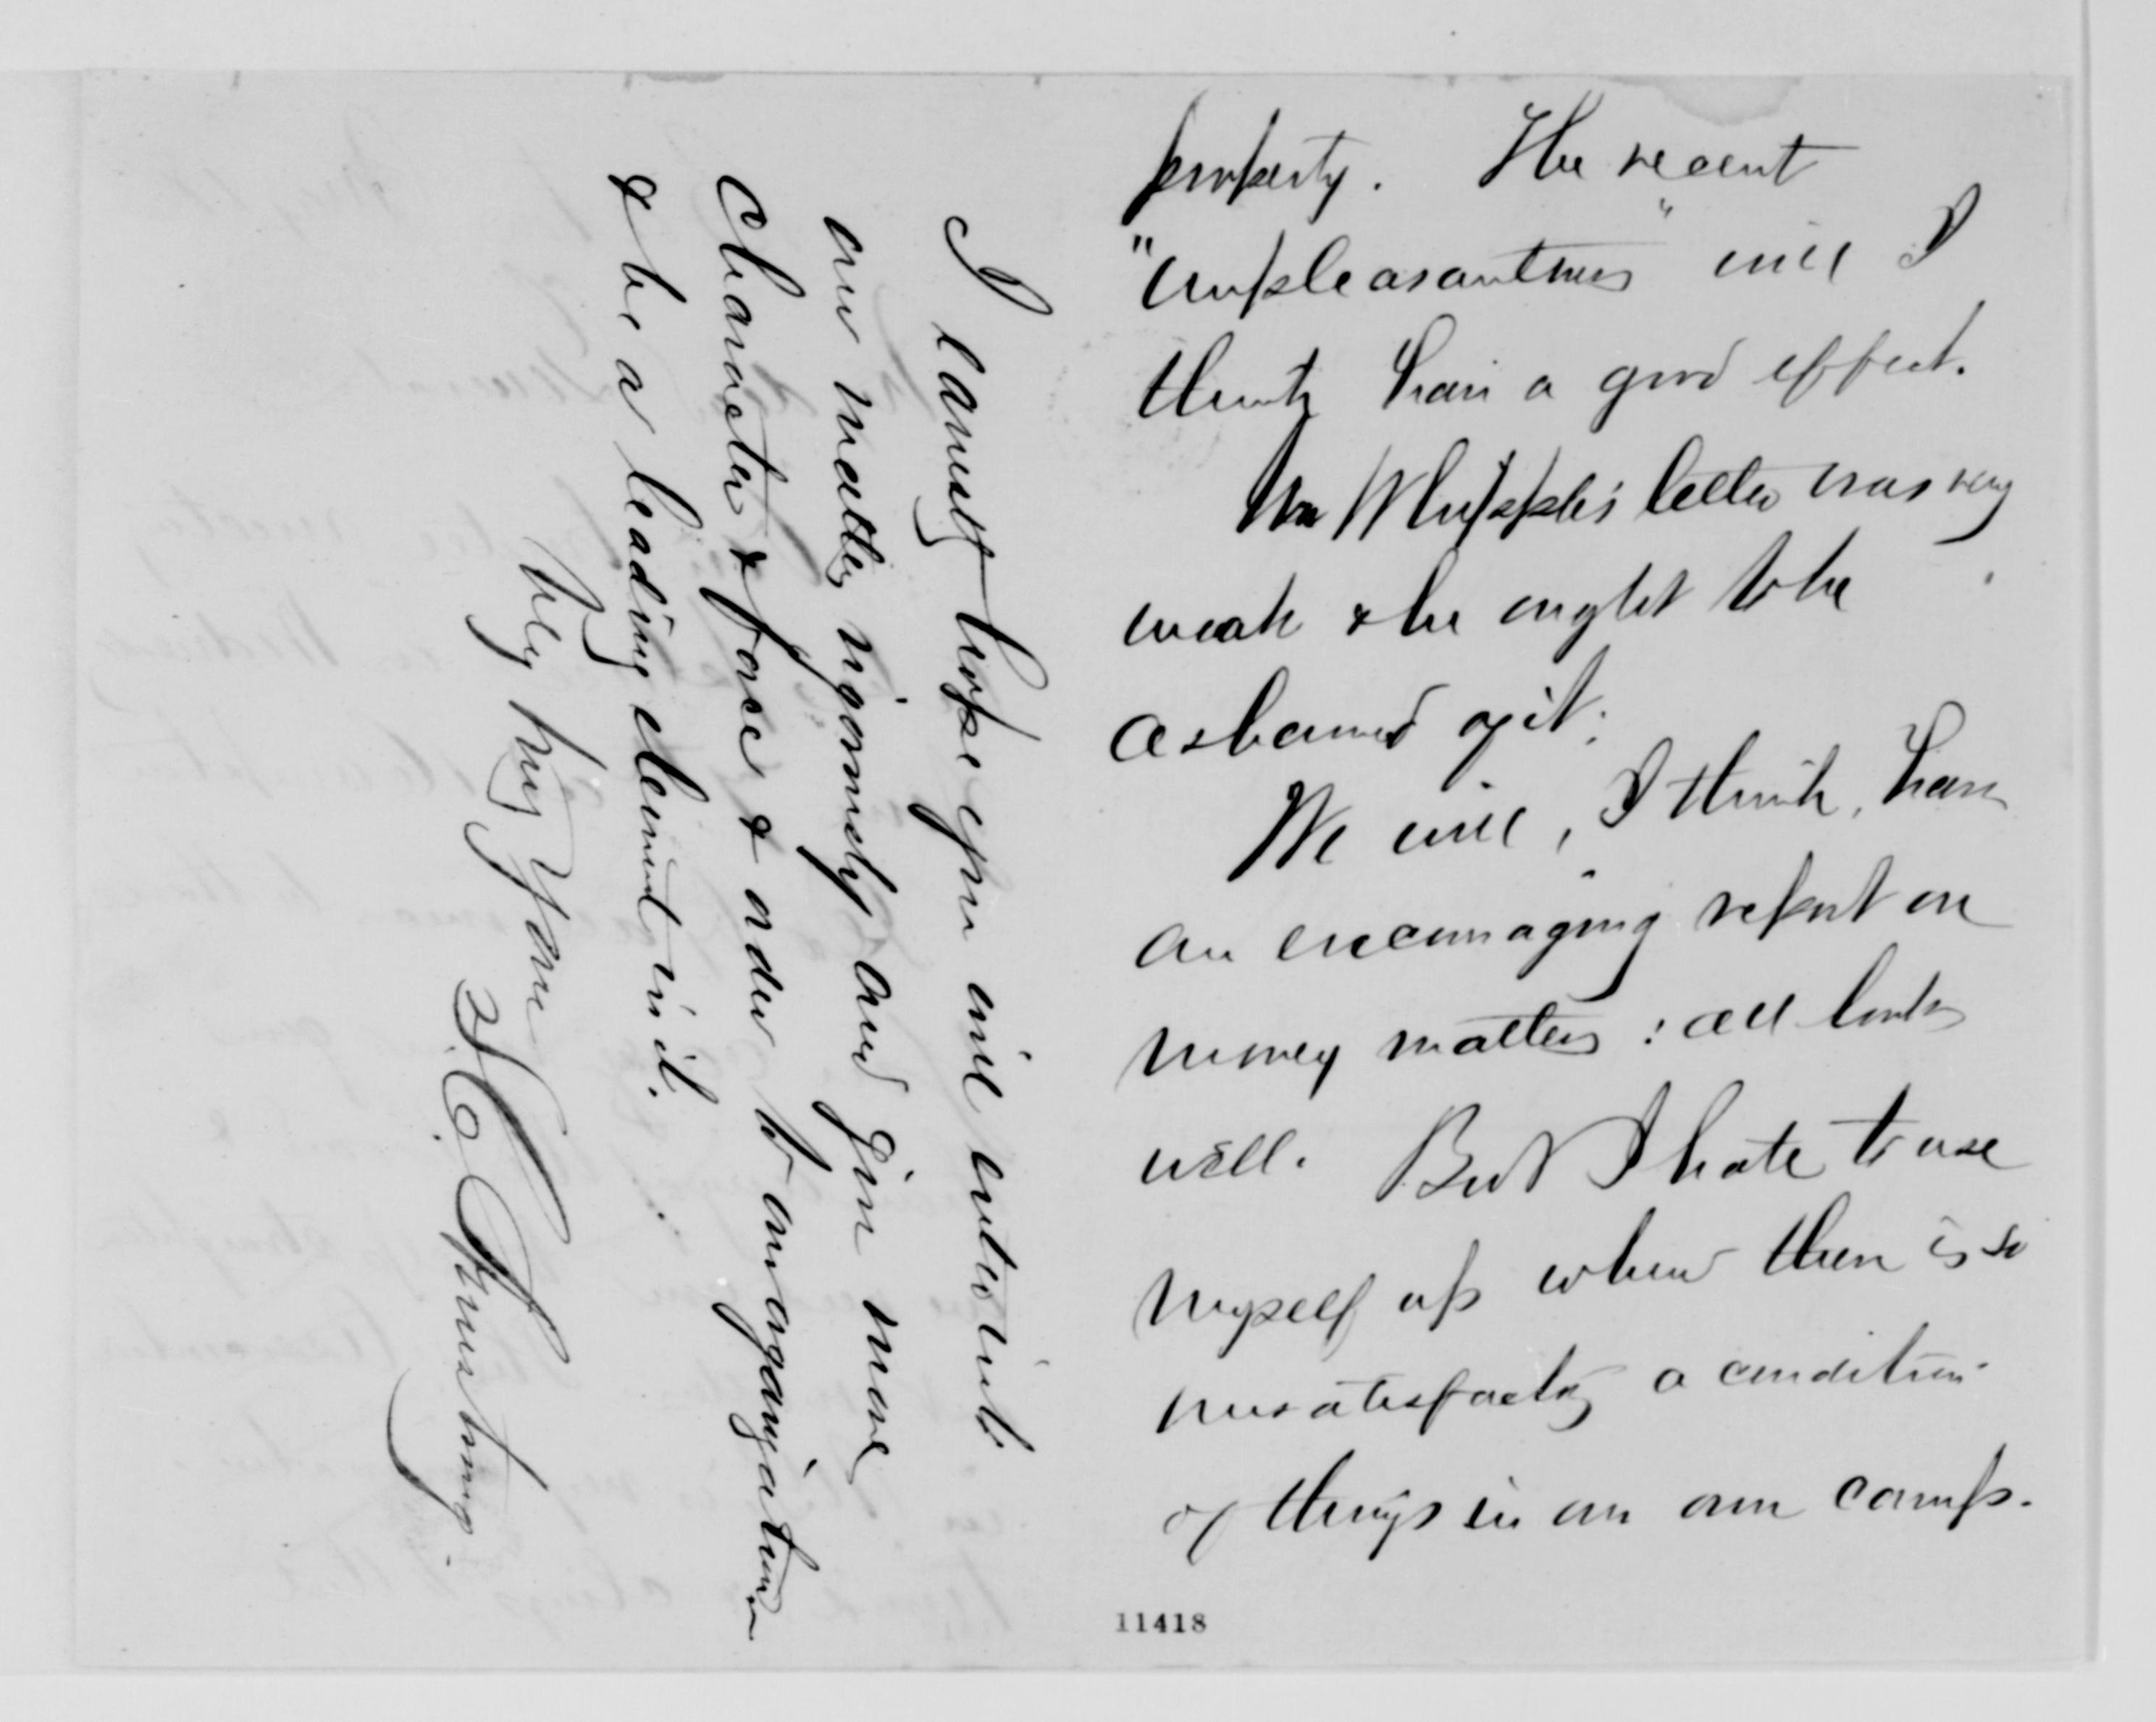 property. The recent
"unpleasantness" will I
think have a good effect.
Mr Whipple's letter was very
weak & he ought to be
ashamed of it.
We will, I think, have
an encouraging report on
money matters: all looks
well. But I hate to use
myself up when there is so
unsatisfactory a condition
of things in our own camp.
11418
I earnestly hope you will enter into
our matters vigorously and give more
character & force & order to our organization
& be a leading element in it.
Very truly Yours
S. C. Armstrong.